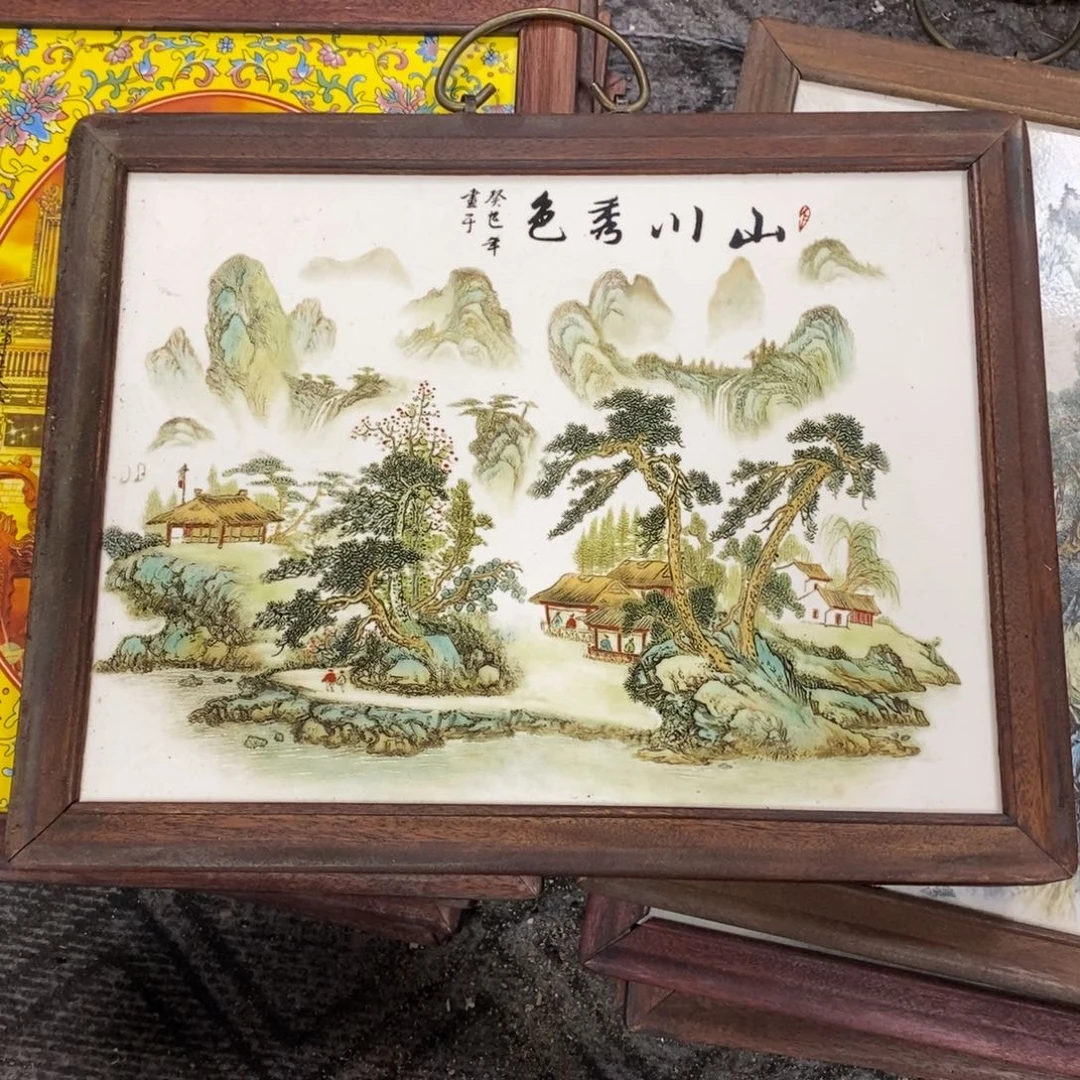 山川秀色
癸巳年
畫于